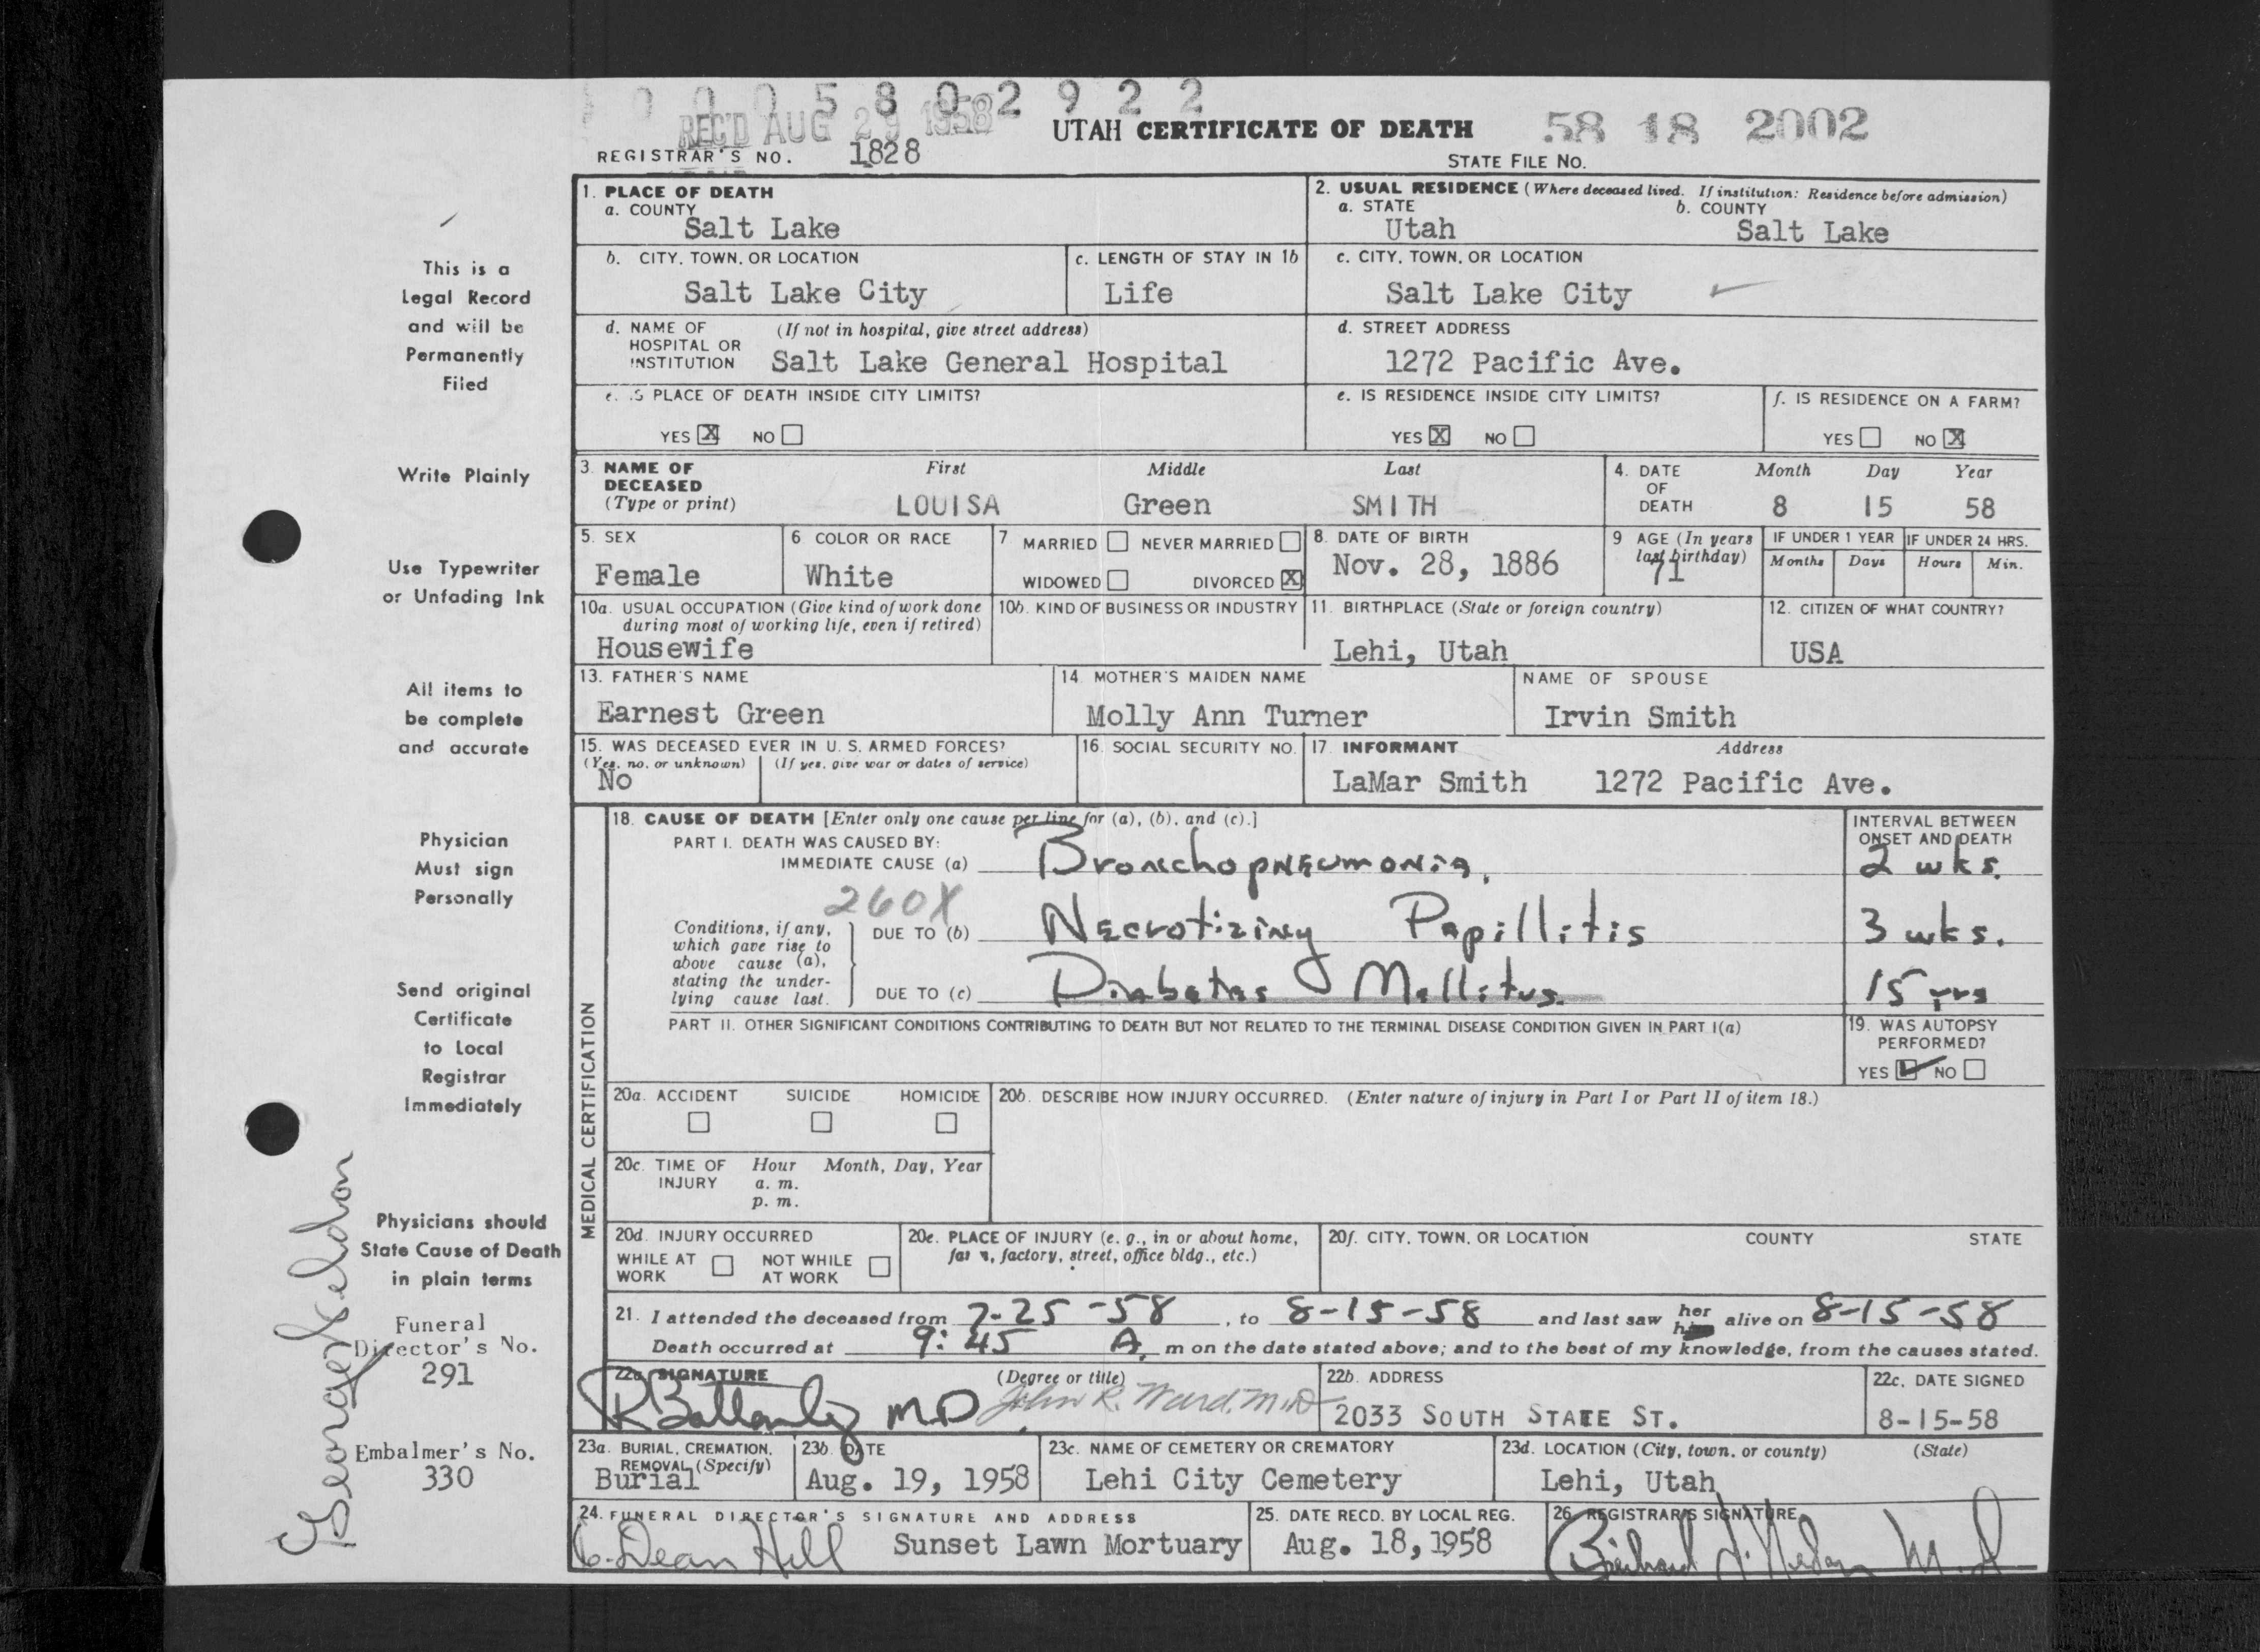 0 0 0 5 8 0 2 9 2 2
REC'D AUG 29 1958
UTAH CERTIFICATE OF DEATH
58 18 2002
REGISTRAR'S NO. 1828
STATE FILE NO.
This is a
Legal Record
and will be
Permanently
Filed
Write Plainly
Use Typewriter
or Unfading Ink
All items to
be complete
and accurate
Physician
Must sign
Personally
Send original
Certificate
to Local
Registrar
Immediately
Physicians should
State Cause of Death
in plain terms
Funeral
Director's No.
291
Embalmer's No.
330
1. PLACE OF DEATH
a. COUNTY
Salt Lake
2. USUAL RESIDENCE (Where deceased lived. If institution: Residence before admission)
a. STATE b. COUNTY
Utah Salt Lake
b. CITY, TOWN, OR LOCATION
Salt Lake City
c. LENGTH OF STAY IN 1b
Life
c. CITY, TOWN, OR LOCATION
Salt Lake City
d. NAME OF (If not in hospital, give street address)
HOSPITAL OR
INSTITUTION Salt Lake General Hospital
d. STREET ADDRESS
1272 Pacific Ave.
e. IS PLACE OF DEATH INSIDE CITY LIMITS?
YES X NO
e. IS RESIDENCE INSIDE CITY LIMITS?
YES X NO
f. IS RESIDENCE ON A FARM?
YES NO X
3. NAME OF First Middle Last
DECEASED
(Type or print) LOUISA Green SMITH
4. DATE Month Day Year
OF
DEATH 8 15 58
5. SEX
Female
6 COLOR OR RACE
White
7 MARRIED NEVER MARRIED
WIDOWED DIVORCED X
8. DATE OF BIRTH
Nov. 28, 1886
9 AGE (In years
last birthday)
71
IF UNDER 1 YEAR IF UNDER 24 HRS.
Months Days Hours Min.
10a. USUAL OCCUPATION (Give kind of work done
during most of working life, even if retired)
Housewife
10b. KIND OF BUSINESS OR INDUSTRY
11. BIRTHPLACE (State or foreign country)
Lehi, Utah
12. CITIZEN OF WHAT COUNTRY?
USA
13. FATHER'S NAME
Earnest Green
14. MOTHER'S MAIDEN NAME
Molly Ann Turner
NAME OF SPOUSE
Irvin Smith
15. WAS DECEASED EVER IN U. S. ARMED FORCES?
(Yes, no, or unknown) (If yes, give war or dates of service)
No
16. SOCIAL SECURITY NO.
17. INFORMANT Address
LaMar Smith 1272 Pacific Ave.
MEDICAL CERTIFICATION
18. CAUSE OF DEATH [Enter only one cause per line for (a), (b), and (c).]
INTERVAL BETWEEN
ONSET AND DEATH
PART I. DEATH WAS CAUSED BY:
IMMEDIATE CAUSE (a) Bronchopneumonia, 2 wks.
260X
Conditions, if any,
which gave rise to
above cause (a),
stating the under-
lying cause last.
DUE TO (b) Necrotizing Papillitis 3 wks.
DUE TO (c) Diabetes Mellitus 15 yrs
PART II. OTHER SIGNIFICANT CONDITIONS CONTRIBUTING TO DEATH BUT NOT RELATED TO THE TERMINAL DISEASE CONDITION GIVEN IN PART I(a)
19. WAS AUTOPSY
PERFORMED?
YES NO
20a. ACCIDENT SUICIDE HOMICIDE
20b. DESCRIBE HOW INJURY OCCURRED. (Enter nature of injury in Part I or Part II of item 18.)
20c. TIME OF Hour Month, Day, Year
INJURY a. m.
p. m.
20d. INJURY OCCURRED
WHILE AT NOT WHILE
WORK AT WORK
20e. PLACE OF INJURY (e. g., in or about home,
farm, factory, street, office bldg., etc.)
20f. CITY, TOWN, OR LOCATION COUNTY STATE
21. I attended the deceased from 7-25-58, to 8-15-58 and last saw her him alive on 8-15-58
Death occurred at 9:45 A. m on the date stated above; and to the best of my knowledge, from the causes stated.
22a. SIGNATURE (Degree or title)
M.D. John R. Ward, M.D.
22b. ADDRESS
2033 SOUTH STATE ST.
22c. DATE SIGNED
8-15-58
23a. BURIAL, CREMATION,
REMOVAL (Specify)
Burial
23b. DATE
Aug. 19, 1958
23c. NAME OF CEMETERY OR CREMATORY
Lehi City Cemetery
23d. LOCATION (City, town, or county) (State)
Lehi, Utah
24. FUNERAL DIRECTOR'S SIGNATURE AND ADDRESS
Dean Hill Sunset Lawn Mortuary
25. DATE RECD. BY LOCAL REG.
Aug. 18, 1958
26. REGISTRAR'S SIGNATURE